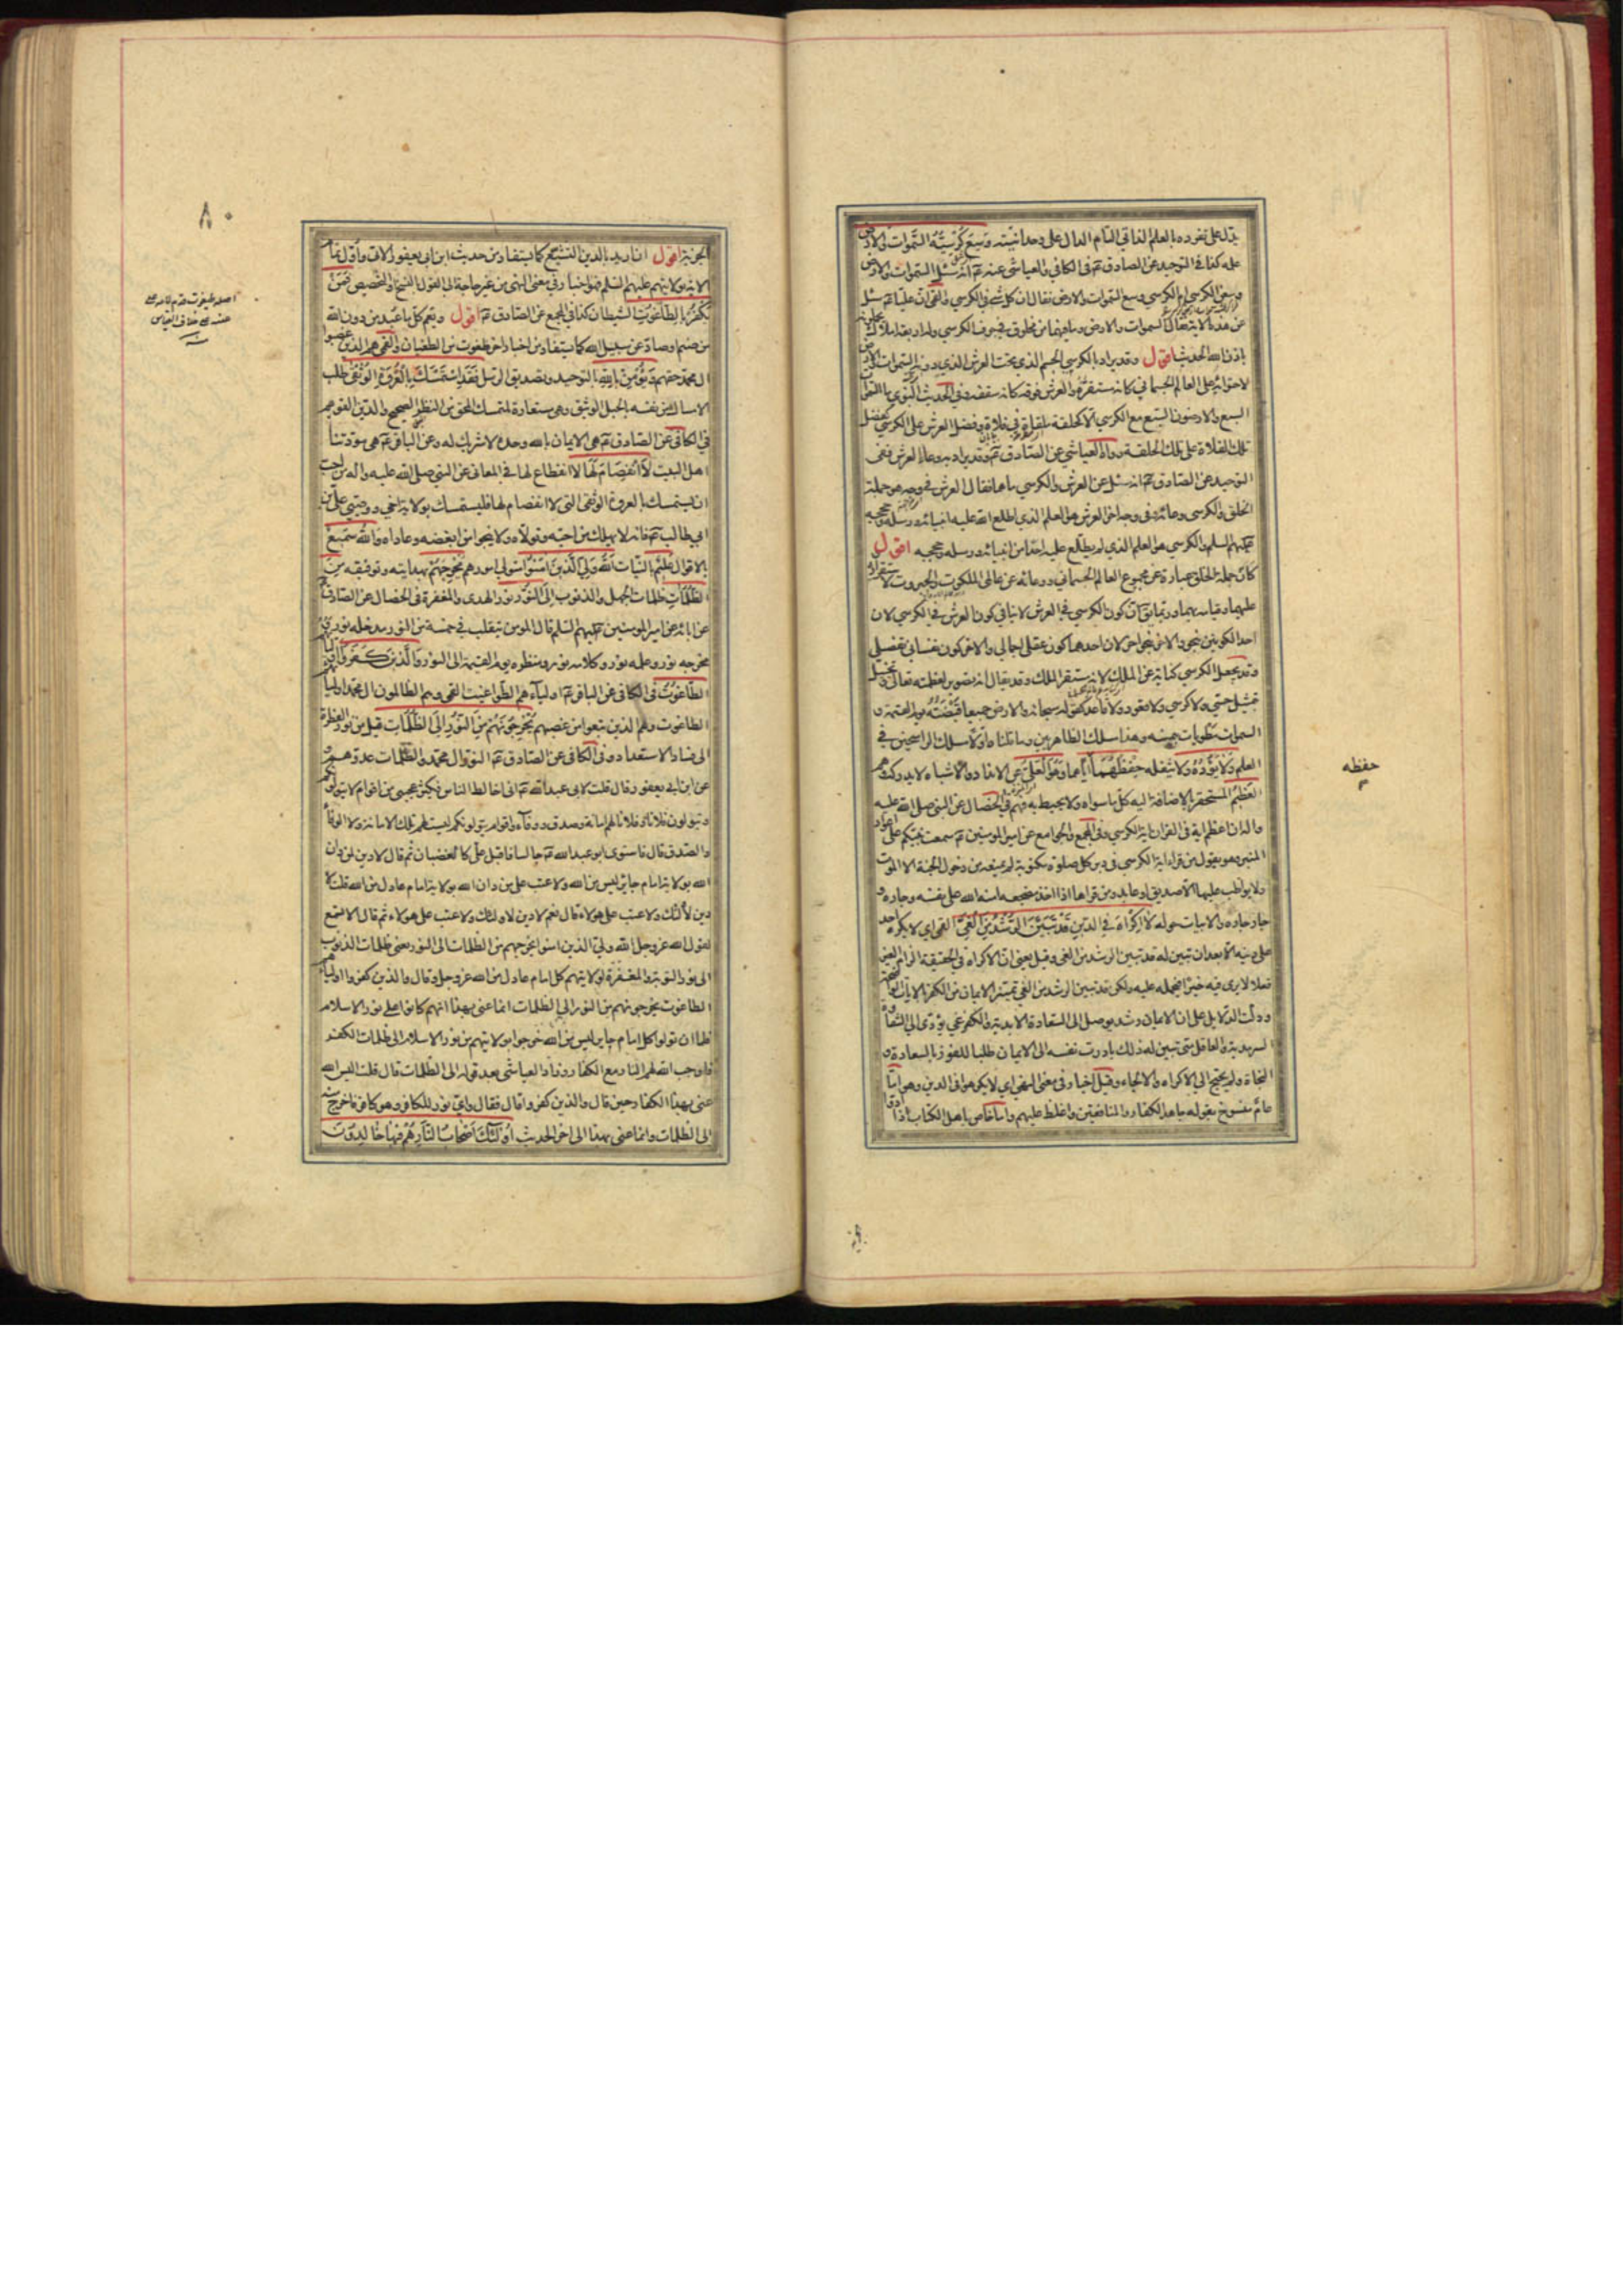 يدل على تفرده بالعلم الذاتي التام الدال على وحدانيته وسع كرسيه السموات والارض
علمه كذا في التوحيد عن الصادق ع وفي الكافي والعياشي عنه ع انه سئل السموات والارض
وسعن الكرسي ام الكرسي وسع السموات والارض فقال ان كل شئ في الكرسي والقمي ان عليا ع سئل
عن هذه الاية فقال السموات والارض وما فيهما من مخلوق في جوف الكرسي وله اربعة املاك يحملونه
باذن الله الحديث اقول وقد يراد بالكرسي الجسم الذي تحت العرش الذي دونه السموات والارض
لاحتوائه على العالم الجسماني كانه مستقره والعرش فوقه كانه سقفه وفي الحديث النبوي ما السموات
السبع والارضون السبع مع الكرسي الا كحلقة ملقاة في فلاة وفضل العرش على الكرسي كفضل
تلك الفلاة على تلك الحلقة رواه العياشي عن الصادق ع وقد يراد به وعاء العرش ففي
التوحيد عن الصادق ع انه سئل عن العرش والكرسي ما هما فقال العرش في وجه هو جملة
الخلق والكرسي وعاؤه وفي وجه اخر العرش هو العلم الذي اطلع الله عليه انبيائه ورسله وحججه
عليهم السلم والكرسي هو العلم الذي لم يطلع عليه احدا من انبيائه ورسله وحججه اقول
كان جملة الخلق عبارة عن مجموع العالم الجسماني ووعائه عن عالمي الملكوت والجبروت لاستقراره
عليهما وقيامه بهما وربما يق ان كون الكرسي في العرش لا ينافي كون العرش في الكرسي لان
احد الكونين بنحو والاخر بنحو اخر لان احدهما كون عقلي اجمالي والاخر كون نفساني تفصيلي
وقد يجعل الكرسي كناية عن الملك لانه مستقر الملك وقد يقال انه تصوير لعظمته تعالى وتخييل
بتمثيل حسي ولا كرسي ولا قعود ولا قاعد كقوله سبحانه والارض جميعا قبضته يوم القيمة و
السموات مطويات بيمينه وهذا مسلك الظاهريين وما قلناه اولا مسلك الراسخين في
العلم ولا يؤده ولا يثقله حفظهما اياهما وهو العلي عن الانداد والاشباه لا يدركه وهم
العظيم المستحقر بالاضافة اليه كل ما سواه ولا يحيط به فهم في الخصال عن النبي صلى الله عليه
واله ان اعظم اية في القران اية الكرسي وفي المجمع والجوامع عن امير المومنين ع سمعت نبيكم على اعواد
المنبر وهو يقول من قرا اية الكرسي في دبر كل صلوة مكتوبة لم يمنعه من دخول الجنة الا الموت
ولا يواظب عليها الا صديق او عابد ومن قراها اذا اخذ مضجعه امنه الله على نفسه وجاره و
جار جاره والابيات حوله لا اكراه في الدين قد تبين الرشد من الغي القمي اي لا يكره احد
على دينه الا بعد ان تبين له قد تبين الرشد من الغي وقيل يعني ان الاكراه في الحقيقة الزام الغير
فعلا لا يرى فيه خيرا فيحمله عليه ولكن قد تبين الرشد من الغي تميز الايمان من الكفر بالايات الواضحة
ودلت الدلايل على ان الايمان رشد يوصل الى السعادة الابدية والكفر غي يؤدي الى الشقاوة
السرمدية والعاقل متى تبين له ذلك بادرت نفسه الى الايمان طلبا للفوز بالسعادة و
النجاة ولم يحتج الى الاكراه والالجاء وقيل اخبار في معنى النهي اي لا يكرهوا في الدين وهو اما
عام منسوخ بقوله جاهد الكفار والمنافقين واغلظ عليهم واما خاص باهل الكتاب اذا ادوا
حفظه
م
الجزية اقول ان اريد بالدين التشيع كما يستفاد من حديث ابن ابي يعفور الاتي واول تمام
الاية بولايتهم عليهم السلم فهو اخبار في معنى النهي من غير حاجة الى القول بالنسخ والتخصيص فمن
يكفر بالطاغوت الشيطان كذا في المجمع عن الصادق ع اقول ويعم كل ما عبد من دون الله
من صنم وصاد عن سبيل الله كما يستفاد من اخبار اخر طغوت من الطغيان والقمي هم الذين غصبوا
ال محمد حقهم ويؤمن بالله بالتوحيد وتصديق الرسل فقد استمسك بالعروة الوثقى طلب
الامساك من نفسه بالحبل الوثيق وهي مستعارة لمتمسك المحق من النظر الصحيح والدين القويم
في الكافي عن الصادق ع هي الايمان بالله وحده لا شريك له وعن الباقر ع هي مودتنا
اهل البيت لا انفصام لها لا انقطاع لها في المعاني عن النبي صلى الله عليه واله من احب
ان يستمسك بالعروة الوثقى التي لا انفصام لها فليستمسك بولاية اخي ووصيي علي بن
ابي طالب ع فانه لا يهلك من احبه وتولاه ولا ينجو من ابغضه وعاداه والله سميع
بالاقوال عليم بالنيات الله ولي الذين امنوا متولي امورهم يخرجهم بهدايته وتوفيقه من
الظلمات ظلمات الجهل والذنوب الى النور نور الهدى والمغفرة في الخصال عن الصادق
عن ابائه عن امير المومنين عليهم السلم قال المومن يتقلب في خمسة من النور مدخله نور و
مخرجه نور وعلمه نور وكلامه نور ومنظره يوم القيمة الى النور والذين كفروا اولياؤهم
الطاغوت في الكافي عن الباقر ع اولياؤهم الطواغيت القمي وهم الظالمون ال محمد اولياؤهم
الطاغوت وهم الذين تبعوا من غصبهم يخرجونهم من النور الى الظلمات قيل من نور الفطرة
الى فساد الاستعداد وفي الكافي عن الصادق ع النور ال محمد والظلمات عدوهم و
عن ابن ابي يعفور قال قلت لابي عبد الله ع اني اخالط الناس فيكثر عجبي من اقوام لا يتولونكم
ويتولون فلانا وفلانا لهم امانة وصدق ووفاء واقوام يتولونكم ليست لهم تلك الامانة ولا الوفاء
والصدق قال فاستوى ابو عبد الله ع جالسا فاقبل علي كالغضبان ثم قال لا دين لمن دان
الله بولاية امام جاير ليس من الله ولا عتب على من دان الله بولاية امام عادل من الله قلت لا
دين لاولئك ولا عتب على هولاء قال نعم لا دين لاولئك ولا عتب على هولاء ثم قال الا تسمع
لقول الله عز وجل الله ولي الذين امنوا يخرجهم من الظلمات الى النور يعني ظلمات الذنوب
الى نور التوبة والمغفرة لولايتهم كل امام عادل من الله عز وجل وقال والذين كفروا اولياؤهم
الطاغوت يخرجونهم من النور الى الظلمات انما عنى بهذا انهم كانوا على نور الاسلام
فلما ان تولوا كل امام جاير ليس من الله خرجوا بولايتهم من نور الاسلام الى ظلمات الكفر
فاوجب الله لهم النار مع الكفار وزاد العياشي بعد قوله الى الظلمات قال قلت اليس الله
عنى بهذا الكفار حين قال والذين كفروا قال فقال واي نور للكافر وهو كافر فاخرج منه
الى الظلمات وانما عنى بهذا الى اخر الحديث اولئك اصحاب النار هم فيها خالدون
٨٠